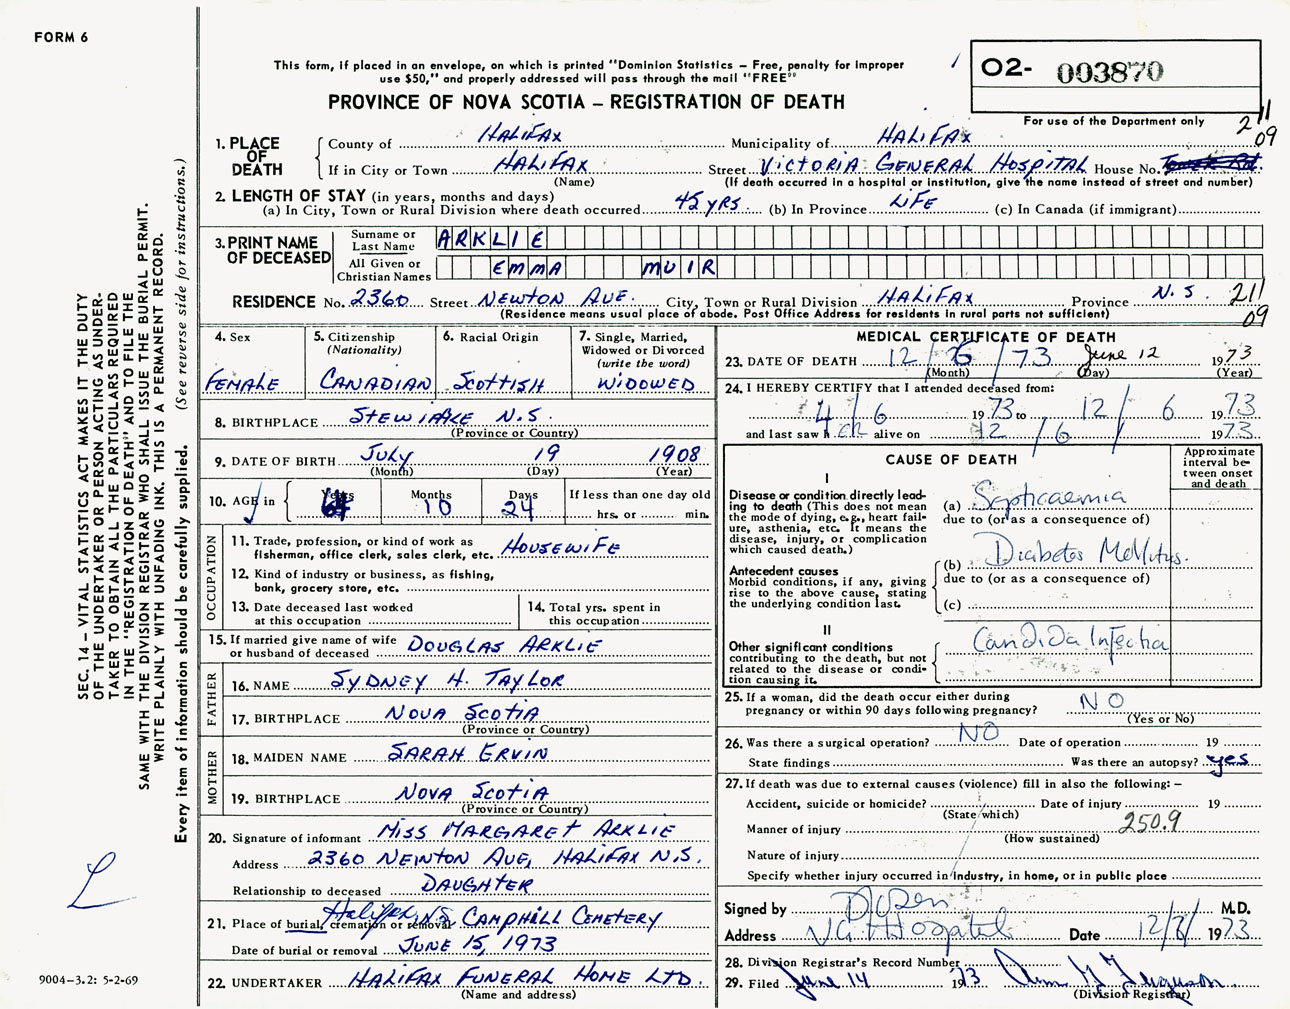 FORM 6
This form, if placed in an envelope, on which is printed "Dominion Statistics – Free, penalty for improper
use $50," and properly addressed will pass through the mail "FREE"
PROVINCE OF NOVA SCOTIA – REGISTRATION OF DEATH
02- 003870
For use of the Department only
211
09
1. PLACE OF DEATH
County of HALIFAX Municipality of HALIFAX
If in City or Town HALIFAX Street VICTORIA GENERAL HOSPITAL House No.
(Name) (If death occurred in a hospital or institution, give the name instead of street and number)
2. LENGTH OF STAY (in years, months and days)
(a) In City, Town or Rural Division where death occurred 45 YRS. (b) In Province LIFE (c) In Canada (if immigrant)
3. PRINT NAME OF DECEASED
Surname or Last Name ARKLIE
All Given or Christian Names EMMA MUIR
RESIDENCE No. 2360 Street NEWTON AVE. City, Town or Rural Division HALIFAX Province N.S. 211
(Residence means usual place of abode. Post Office Address for residents in rural parts not sufficient) 09
4. Sex
FEMALE
5. Citizenship
(Nationality)
CANADIAN
6. Racial Origin
SCOTTISH
7. Single, Married,
Widowed or Divorced
(write the word)
WIDOWED
8. BIRTHPLACE STEWIAKE N.S.
(Province or Country)
9. DATE OF BIRTH JULY 19 1908
(Month) (Day) (Year)
10. AGE in Years 64 Months 10 Days 24 If less than one day old
hrs. or min.
OCCUPATION
11. Trade, profession, or kind of work as
fisherman, office clerk, sales clerk, etc. HOUSEWIFE
12. Kind of industry or business, as fishing,
bank, grocery store, etc.
13. Date deceased last worked
at this occupation
14. Total yrs. spent in
this occupation
15. If married give name of wife
or husband of deceased DOUGLAS ARKLIE
FATHER
16. NAME SYDNEY H. TAYLOR
17. BIRTHPLACE NOVA SCOTIA
(Province or Country)
MOTHER
18. MAIDEN NAME SARAH ERVIN
19. BIRTHPLACE NOVA SCOTIA
(Province or Country)
20. Signature of informant MISS MARGARET ARKLIE
Address 2360 NEWTON AVE, HALIFAX N.S.
Relationship to deceased DAUGHTER
21. Place of burial, cremation or removal Halifax N.S. CAMPHILL CEMETERY
Date of burial or removal JUNE 15, 1973
22. UNDERTAKER HALIFAX FUNERAL HOME LTD.
(Name and address)
MEDICAL CERTIFICATE OF DEATH
23. DATE OF DEATH 12 / 6 / 73 June 12 1973
(Month) (Day) (Year)
24. I HEREBY CERTIFY that I attended deceased from:
4 / 6 1973 to 12 / 6 1973
and last saw h ER alive on 12 / 6 1973
CAUSE OF DEATH
Approximate
interval be-
tween onset
and death
I
Disease or condition directly lead-
ing to death (This does not mean
the mode of dying, e.g., heart fail-
ure, asthenia, etc. It means the
disease, injury, or complication
which caused death.)
(a) Septicaemia
due to (or as a consequence of)
(b) Diabetes Mellitus.
due to (or as a consequence of)
(c)
Antecedent causes
Morbid conditions, if any, giving
rise to the above cause, stating
the underlying condition last.
II
Other significant conditions
contributing to the death, but not
related to the disease or condi-
tion causing it.
Candida Infection
25. If a woman, did the death occur either during
pregnancy or within 90 days following pregnancy? NO
(Yes or No)
26. Was there a surgical operation? NO Date of operation 19
State findings Was there an autopsy? yes
27. If death was due to external causes (violence) fill in also the following: –
Accident, suicide or homicide? Date of injury 19
(State which)
Manner of injury 250.9
(How sustained)
Nature of injury
Specify whether injury occurred in Industry, in home, or in public place
Signed by M.D.
Address VG Hospital Date 12/6/ 1973
28. Division Registrar's Record Number
29. Filed June 14 1973 Ferguson.
(Division Registrar)
SEC. 14 – VITAL STATISTICS ACT MAKES IT THE DUTY
OF THE UNDERTAKER OR PERSON ACTING AS UNDER-
TAKER TO OBTAIN ALL THE PARTICULARS REQUIRED
IN THE "REGISTRATION OF DEATH" AND TO FILE THE
SAME WITH THE DIVISION REGISTRAR WHO SHALL ISSUE THE BURIAL PERMIT.
WRITE PLAINLY WITH UNFADING INK. THIS IS A PERMANENT RECORD.
Every item of information should be carefully supplied. (See reverse side for instructions.)
L
9004-3.2: 5-2-69